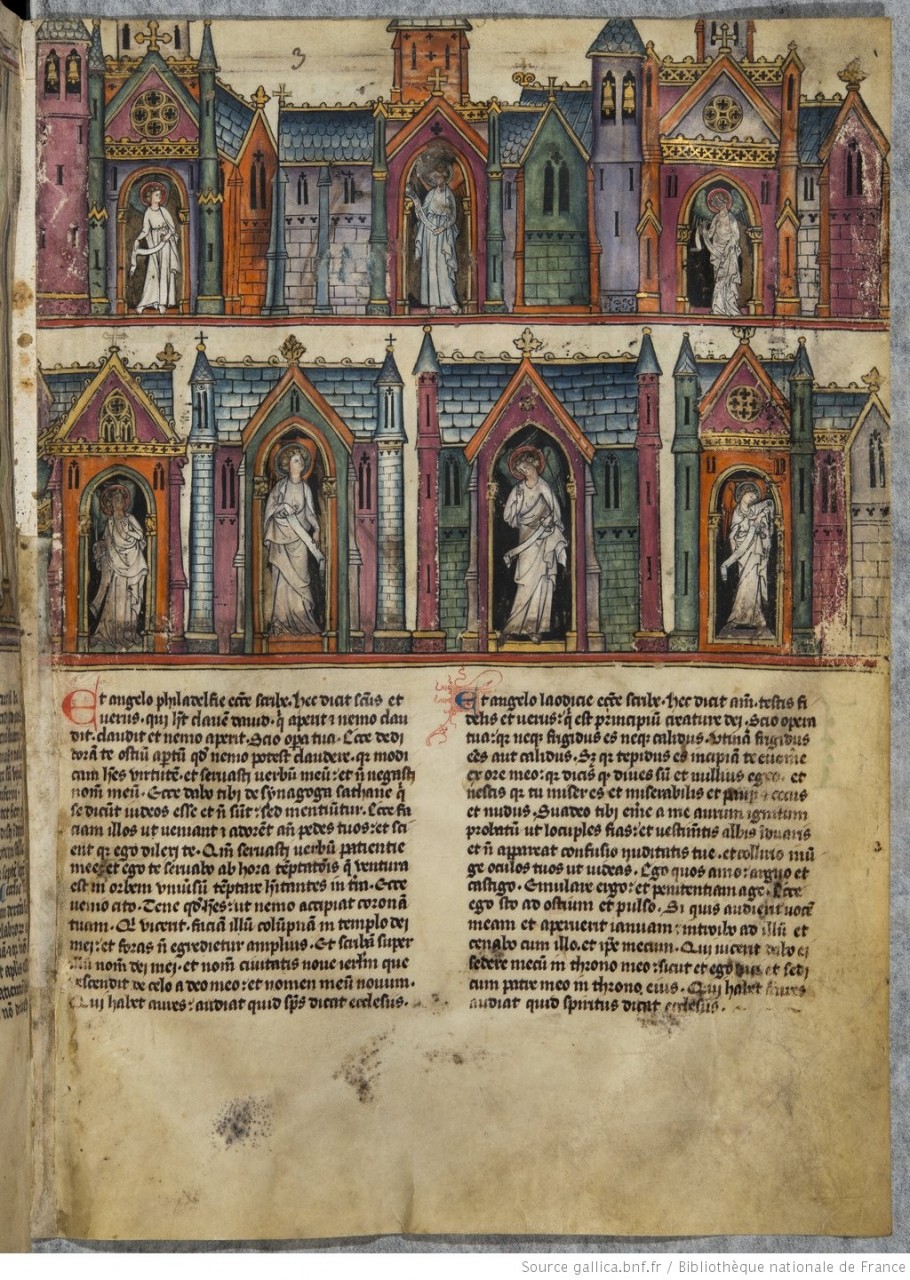 3
Et angelo philadelfie eccẽ scribe. Hec dicit sc̃us et
uerus. qui hꝫt clauẽ dauid. q̃ aperit ⁊ nemo clau
dit. claudit et nemo aperit. Scio opa tua. Ecce dedi
corã te ostiũ aptũ qð nemo potest claudere. qꝛ modi
cum hẽs uirtutẽ. et seruasti uerbũ meũ: et ñ negasti
nom̃ meũ. Ecce dabo tibi de synagoga sathane q̃
se dicũt iudeos esse et ñ sũt: sed mentiũtur. Ecce fa
ciam illos ut ueniant ⁊ adorẽt añ pedes tuos: et sci
ent qꝛ ego dilexi te. Qm̃ seruasti uerbũ patientie
mee: et ego te seruabo ab hora tẽptatõis q̃ uentura
est in orbem uniũsũ tẽptare hitantes in tra. Ecce
uenio cito. Tene qð hẽs: ut nemo accipiat coronã
tuam. Qi uicerit. faciã illũ colũpnã in templo dei
mei: et foras ñ egredietur amplius. Et scribã super
illũ nom̃ dei mei. et nom̃ ciuitatis noue ierlm̃ que
descendit de celo a deo meo: et nomen meũ nouum.
Qui habet aures: audiat quid sp̃s dicat ecclesiis.
Et angelo laodicie eccẽ scribe. Hec dicit am̃. testis fi
delis et uerus: q̃ est principiũ creature dei. Scio opera
tua: qꝛ neqꝫ frigidus es neqꝫ calidus. Utinã frigidus
eẽs aut calidus. Sꝫ qꝛ tepidus es incipiã te euome
ex ore meo: qꝛ dicis qꝛ diues sũ et nullius et
nescis qꝛ tu miser es et miserabilis et paup cecus
et nudus. Suadeo tibi em̃e a me aurum ignitum
probatũ ut locuples fias: et uestim̃tis albis iduaris
et ñ appareat confusio nuditatis tue. et collirio inũ
ge oculos tuos ut uideas. Ego quos amo: arguo et
castigo. Emulare ergo: et penitentiam age. Ecce
ego sto ad ostium et pulso. Si quis audierit uocẽ
meam et aperuerit ianuam: introibo ad illũ et
cenabo cum illo. et ip̃e mecum. Qui uicerit dabo ei
sedere mecũ in throno meo: sicut et ego et sedi
cum patre meo in throno eius. Qui habet aures
audiat quid spiritus dicat ecclesiis.
Source gallica.bnf.fr / Bibliothèque nationale de France